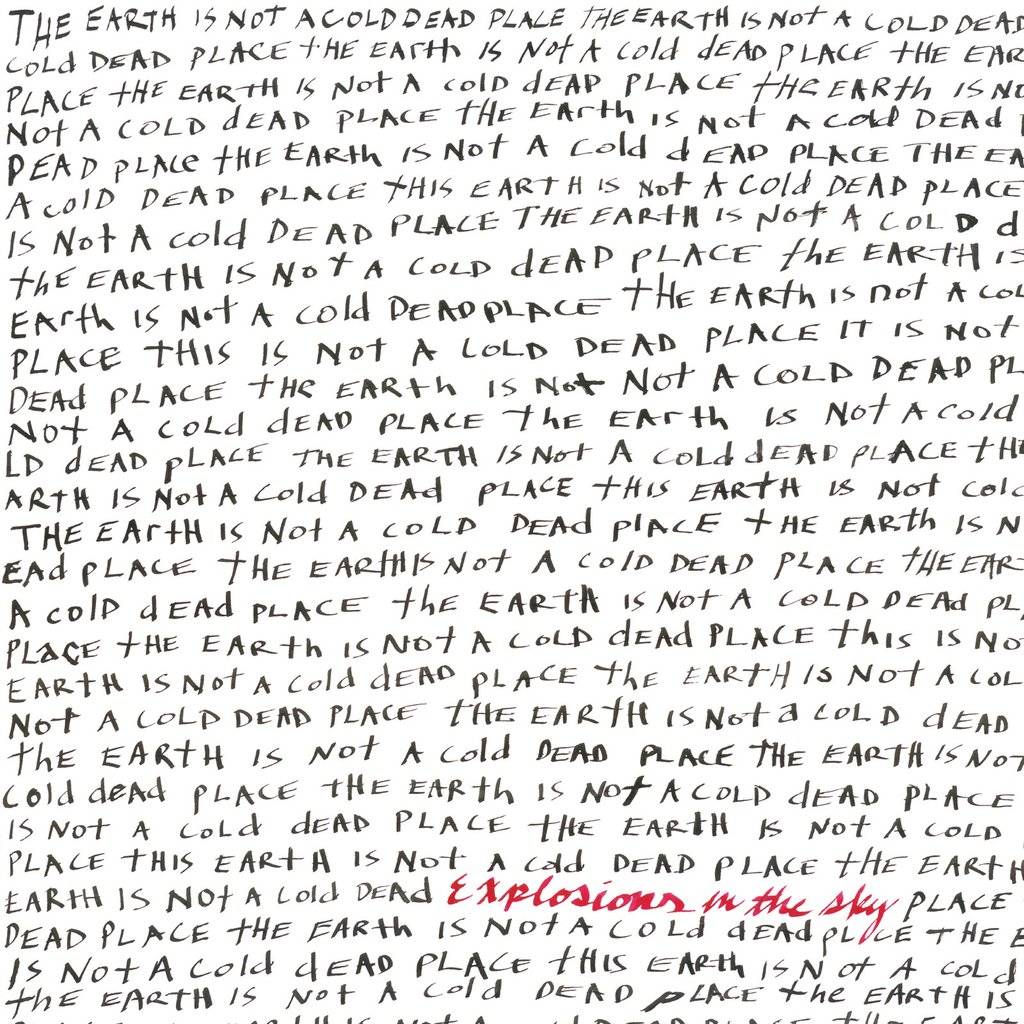 THE EARTH IS NOT A COLD DEAD PLACE THE EARTH IS NOT A COLD DEAD
COLd DEAD PLACE tHE EARth IS Not A Cold dEAD PLACE tHE EAR
PLACE tHE EARtH IS Not A COLD dEAD PLACE tHE EARth IS NO
Not A COLD dEAD PLACE tHE EArth IS Not A Cold DEAd
DEAD pLACe tHE EARth IS Not A Cold dEAD PLACE THE EA
A colD DEAD PLACE tHIS EARTH IS Not A Cold DEAD pLACE
IS Not A cold DEAD PLACE THE EARtH IS Not A COLD d
thE EARTH IS Not A COLD dEAD PLACE the EARTH IS
EArth IS Not A Cold DEAD PLACE tHE EARth IS not A COL
PLACE tHIS IS Not A COLD DEAD PLACE IT IS Not
DEAd PLACE tHe EARth IS Not Not A COLD DEAD PL
Not A COLd dEAD PLACE The EARth IS Not A Cold
LD dEAD pLACE THE EARTH IS Not A COLd dEAD pLACE tH
ARTH IS Not A Cold DEAd pLACE tHIS EARtH IS Not Cold
THE EArtH IS Not A COLD DEAd plACE tHE EARth IS N
EAd PLACE tHE EARtH IS Not A Cold DEAD PLACE tHE EAR
A colD dEAd PLACE thE EARTH IS Not A COLD DEAd pL
PLaCE tHE EARth IS Not A COLD dEAd PLACE thIS IS No
EARtH IS Not A Cold dEAD pLACE thE EARTH IS Not A COL
Not A COLD DEAD PLACE tHE EARTH IS Not a COLD dEAD
thE EARTH IS Not A Cold DEAD PLACE THE EARTH IS NOT
COld deAd pLACE tHE EARth IS Not A COLD dEAD PLACE
IS Not A Cold dEAD PLACE tHE EARtH IS Not A COLD
PLACE tHIS EARtH IS Not A Cold DEAD PLACE tHE EARTH
EARtH IS NOt A Cold DEAD Explosions in the sky PLACE
DEAD PLACE tHE EARth IS Not A COLd dEAd pLACE tHE E
IS Not A Cold dEAD PLACE tHIS EARth IS Not A COLd
thE EARTH IS Not A Cold DEAD pLACE the EARTH IS